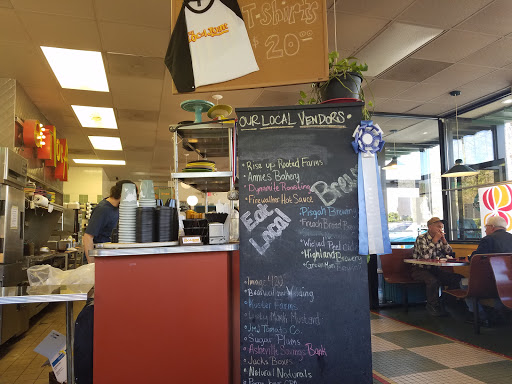 T-Shirts
$20.00
Our Local Vendors
Rise up Rooted Farms
Annie's Bakery
Dynamite Roasting
Firewalker Hot Sauce
Eat Local
Brews
Pisgah Brewing
French Broad
Wicked Peel
Highland Brewery
Green Man
Image 420
Farms
Lusty Monk Mustard
JMJ Tomato Co.
Sugar Plums
Asheville Savings Bank
Jacks Boxes
Natural Naturals
CPA